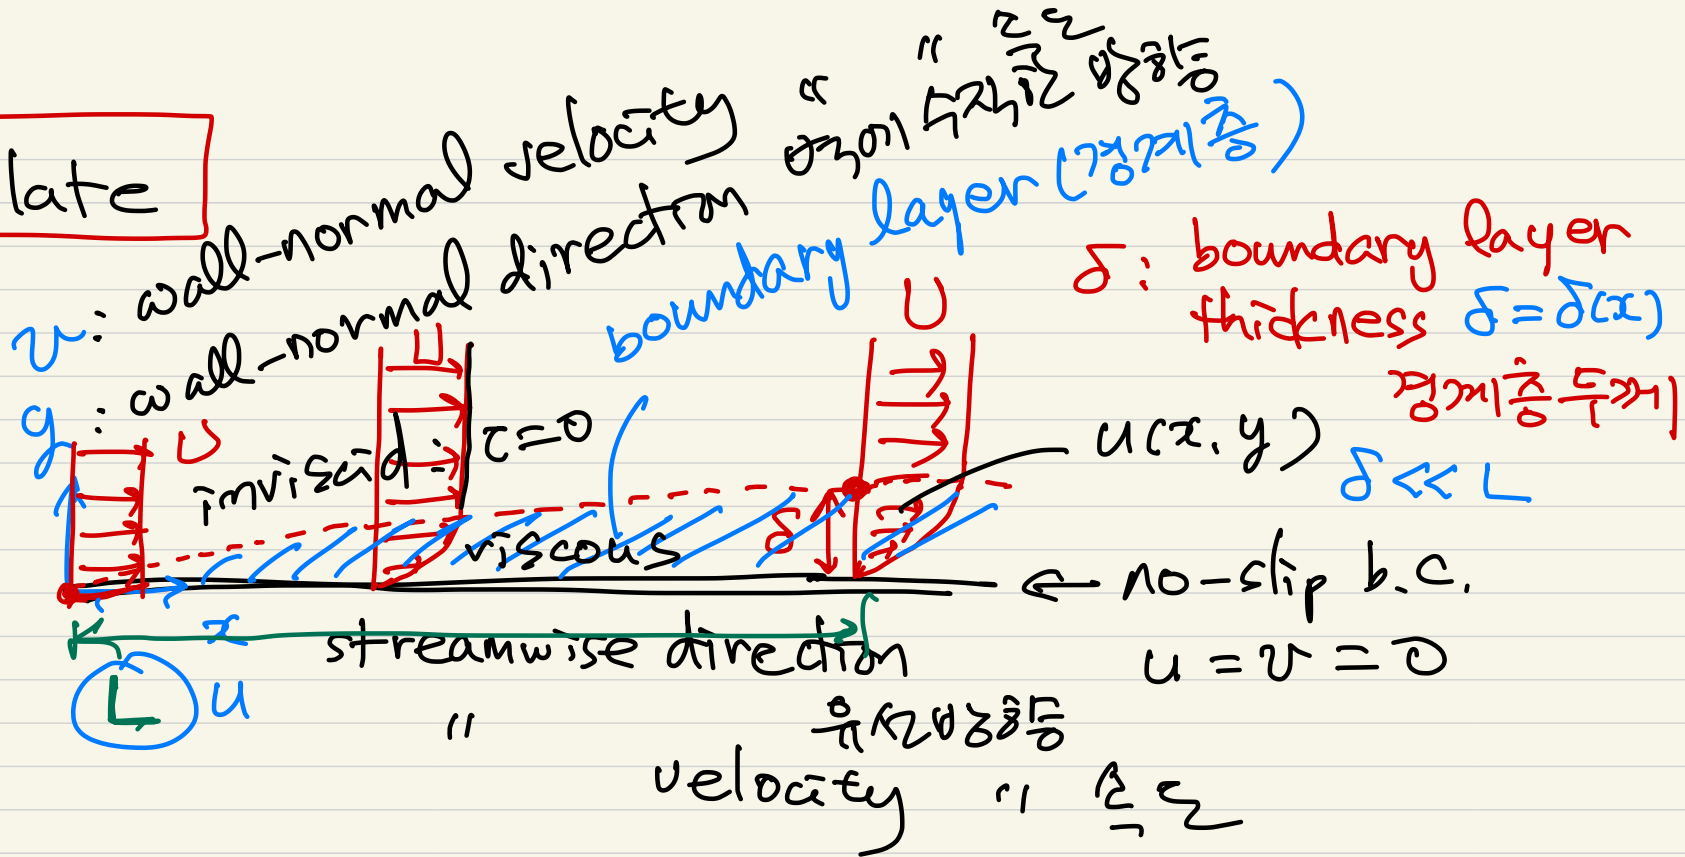 late
v : wall-normal velocity " " 속도
y : wall-normal direction 벽에 수직한 방향
boundary layer (경계층)
δ: boundary layer
thickness δ=δ(x)
경계층 두께
δ << L
U
U
U
inviscid : τ=0
u(x,y)
δ
viscous
no-slip b.c.
u = v = 0
x streamwise direction
유선방향
L
u " velocity " 속도